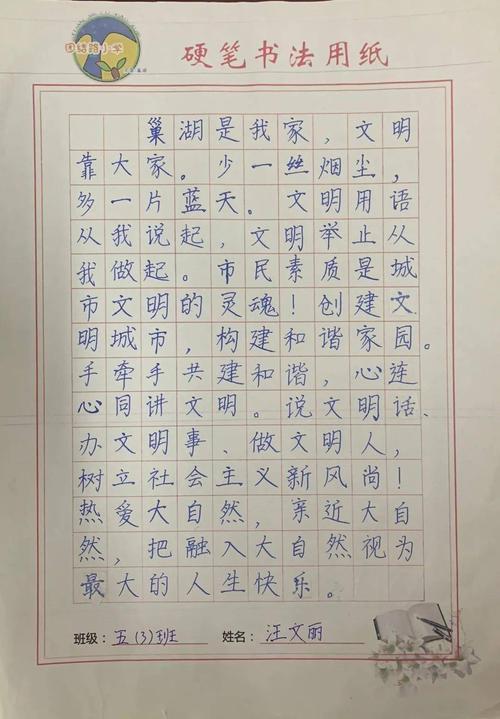 团结路小学
硬笔书法用纸
巢湖是我家，文明
靠大家。少一丝烟尘，
多一片蓝天。文明用语
从我说起，文明举止从
我做起。市民素质是城
市文明的灵魂！创建文
明城市，构建和谐家园。
手牵手共建和谐，心连
心同讲文明。说文明话、
办文明事、做文明人，
树立社会主义新风尚！
热爱大自然，亲近大自
然，把融入大自然视为
最大的人生快乐。
班级：五(3)班 姓名：汪文丽